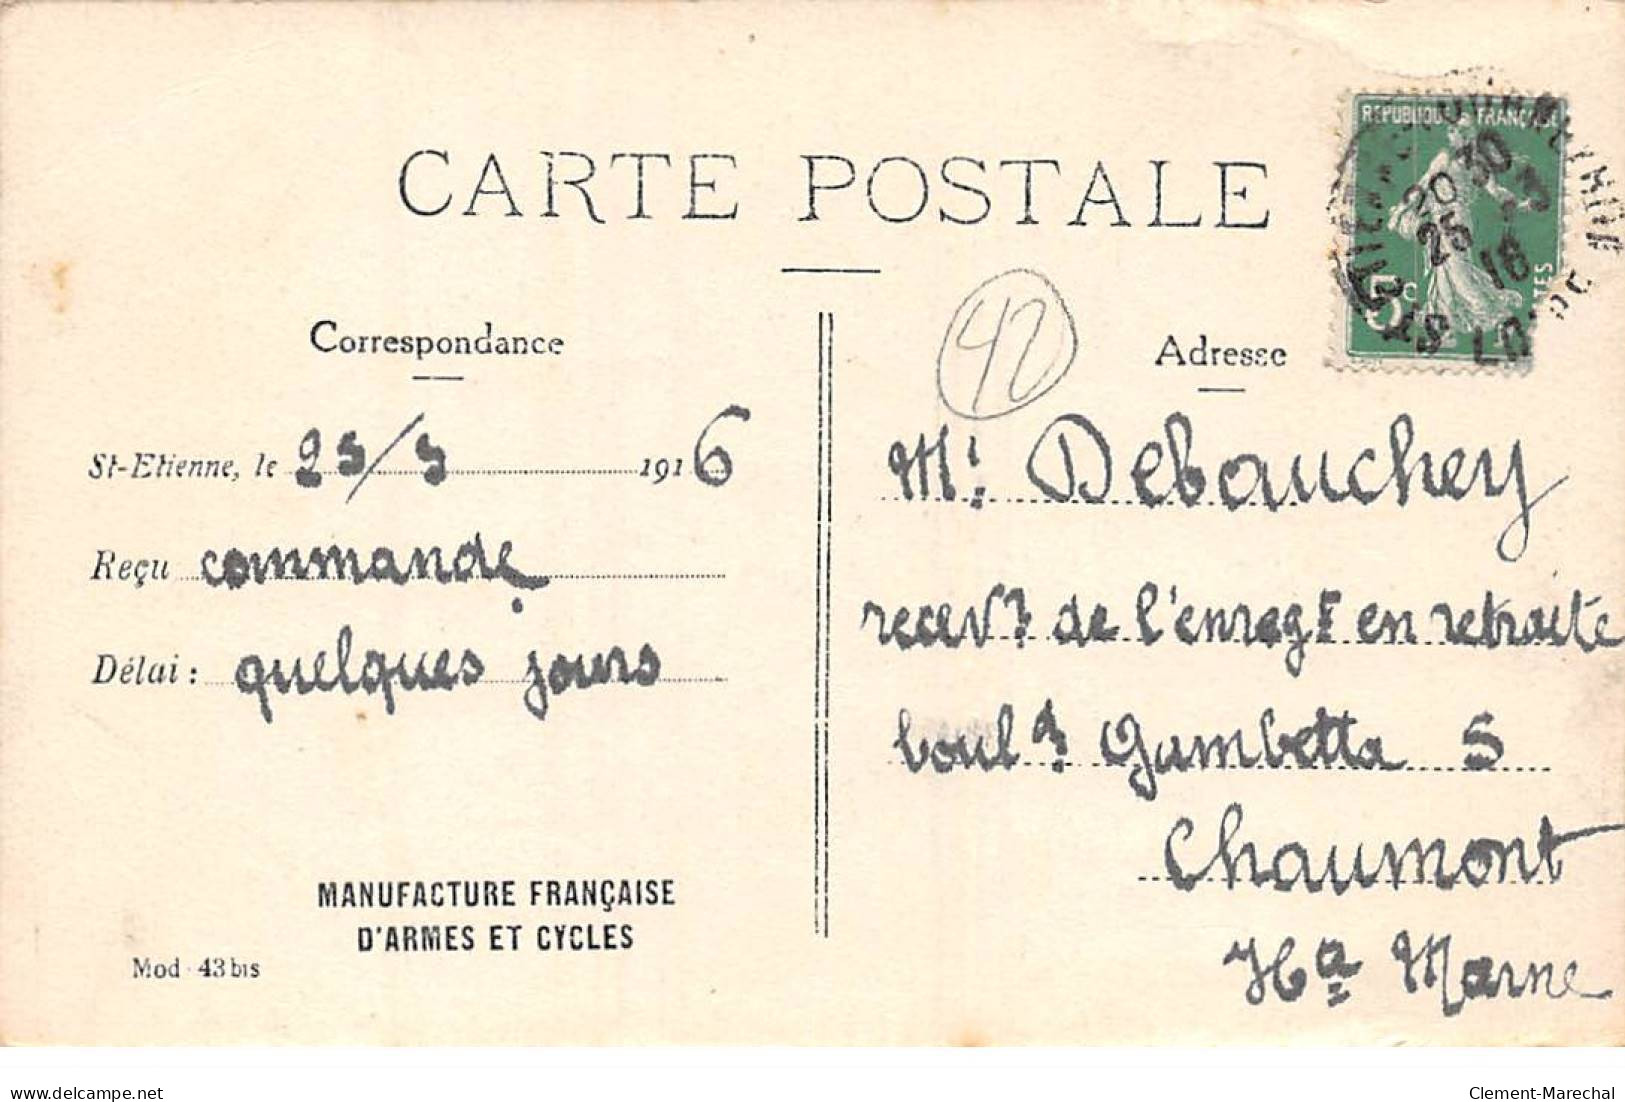 CARTE POSTALE
REPUBLIQUE FRANÇAISE
20 30
25 -3
16
5c
ST ETIENNE
LOIRE
42
Correspondance
St-Etienne, le 25/3 1916
Reçu commande
Délai : quelques jours
MANUFACTURE FRANÇAISE
D'ARMES ET CYCLES
Mod 43 bis
Adresse
Mr Debauchey
recevr de l'enregt en retraite
bould Gambetta 5
Chaumont
Hte Marne
delcampe.net
Clement-Marechal